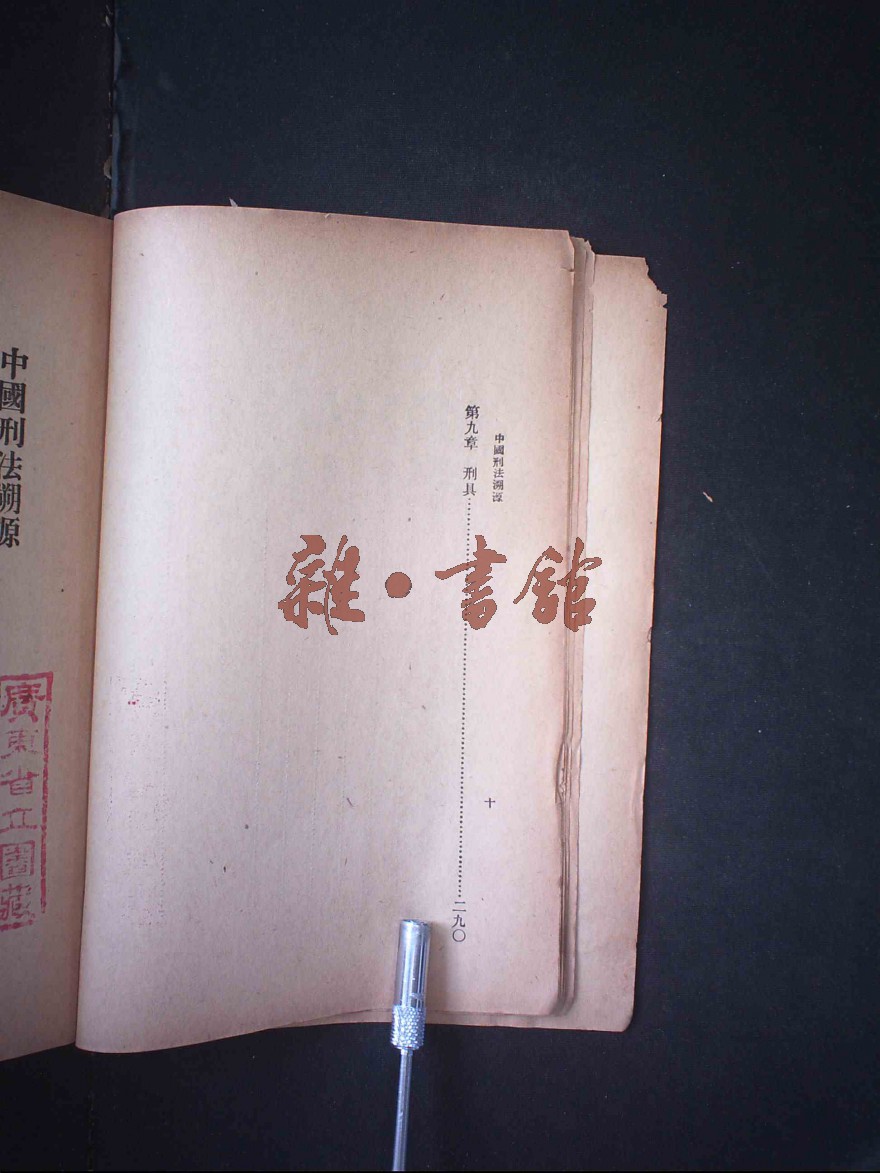 中國刑法溯源
十
第九章　刑具……二九〇
雜·書館
中國刑法溯源
廣東省立圕藏